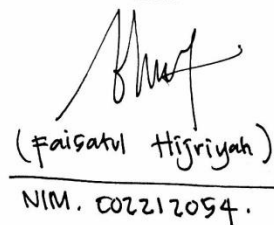 (Faisatul Hijriyah)
NIM. C02212054.